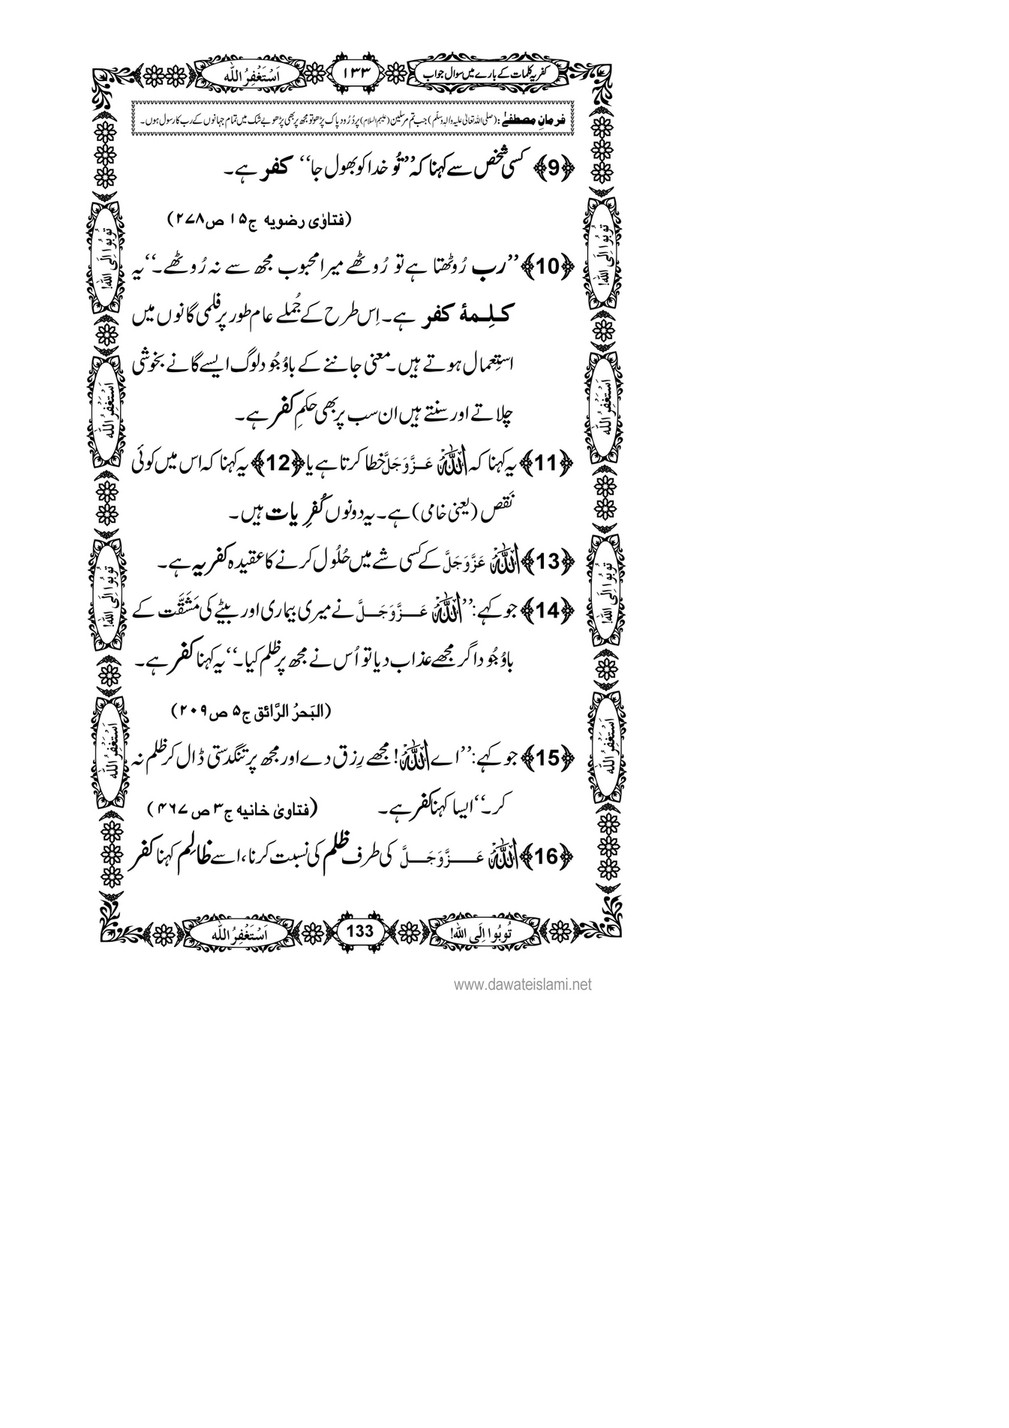 کفریہ کلمات کے بارے میں سوال جواب
۱۳۳
اَسْتَغْفِرُاللّٰہ
فرمانِ مصطفٰے : (صلی اللہ تعالیٰ علیہ والہٖ وسلّم) جب تم مرسلین (علیہم السلام) پر دُرُود پاک پڑھو تو مجھ پر بھی پڑھو بے شک میں تمام جہانوں کے رب کا رسول ہوں۔
﴿9﴾ کسی شخص سے کہنا کہ ’’تُو خدا کو بھول جا‘‘ کفر ہے۔
(فتاوٰی رضویہ ج۱۵ ص۲۷۸)
﴿10﴾ ’’رب رُوٹھتا ہے تو رُوٹھے میرا محبوب مجھ سے نہ رُوٹھے۔‘‘ یہ
کلِمۂ کفر ہے۔ اِس طرح کے جُملے عام طور پر فلمی گانوں میں
استِعمال ہوتے ہیں۔ معنی جاننے کے باوُجُود لوگ ایسے گانے بخوشی
چلاتے اور سنتے ہیں ان سب پر بھی حکمِ کفر ہے۔
﴿11﴾ یہ کہنا کہ اللّٰہ عَزَّوَجَلَّ خطا کرتا ہے یا ﴿12﴾ یہ کہنا کہ اس میں کوئی
نَقص (یعنی خامی) ہے۔ یہ دونوں کُفرِیات ہیں۔
﴿13﴾ اللّٰہ عَزَّوَجَلَّ کے کسی شے میں حُلُول کرنے کا عقیدہ کفریہ ہے۔
﴿14﴾ جو کہے: ’’اللّٰہ عَزَّوَجَلَّ نے میری بیماری اور بیٹے کی مَشَقَّت کے
باوُجُود اگر مجھے عذاب دیا تو اُس نے مجھ پر ظلم کیا۔‘‘ یہ کہنا کفر ہے۔
(البَحرُ الرَّائق ج۵ ص۲۰۹)
﴿15﴾ جو کہے: ’’اے اللّٰہ! مجھے رِزق دے اور مجھ پر تنگدستی ڈال کر ظلم نہ
کر۔‘‘ ایسا کہنا کفر ہے۔ (فتاویٰ خانیہ ج۳ ص ۴۶۷)
﴿16﴾ اللّٰہ عَزَّوَجَلَّ کی طرف ظلم کی نسبت کرنا، اسے ظالِم کہنا کفر
تُوبُوا اِلَی اللّٰہ!
اَسْتَغْفِرُاللّٰہ
تُوبُوا اِلَی اللّٰہ!
اَسْتَغْفِرُاللّٰہ
تُوبُوا اِلَی اللّٰہ!
اَسْتَغْفِرُاللّٰہ
تُوبُوا اِلَی اللّٰہ!
اَسْتَغْفِرُاللّٰہ
تُوبُوا اِلَی اللّٰہ!
133
اَسْتَغْفِرُاللّٰہ
www.dawateislami.net